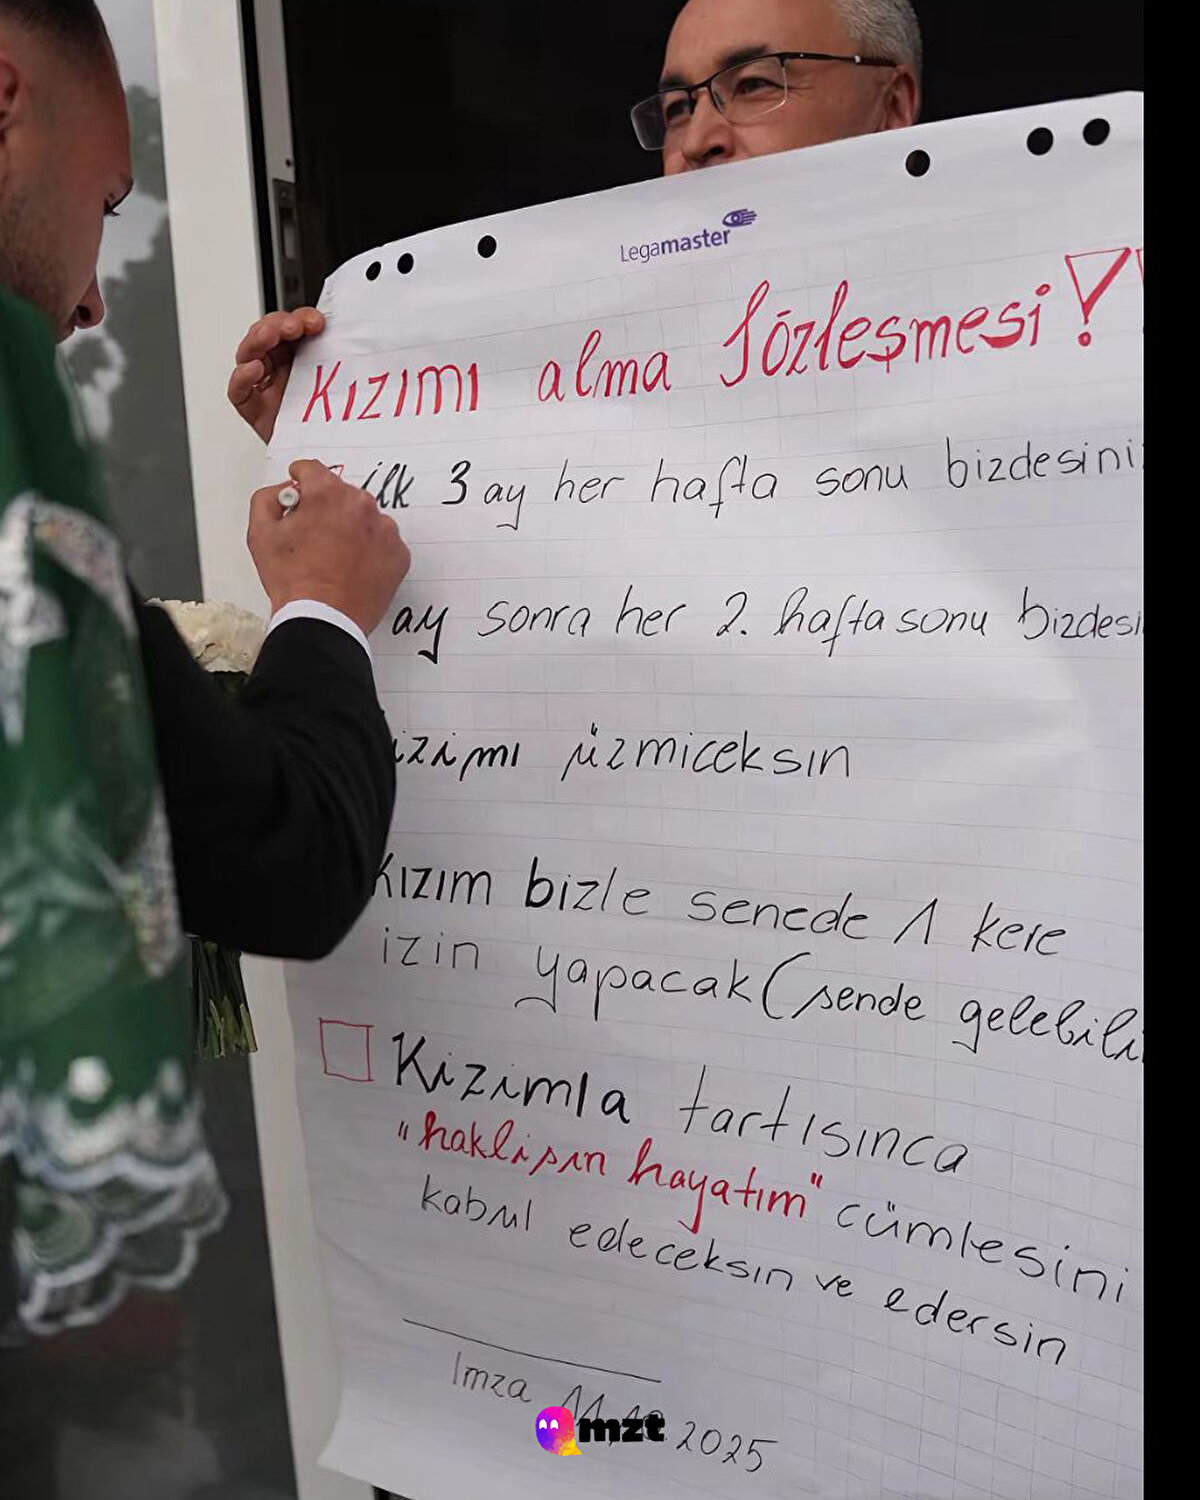 Legamaster
Kızımı alma Sözleşmesi!
ilk 3 ay her hafta sonu bizdesini
ay sonra her 2. hafta sonu bizdesi
ızımı üzmiceksin
Kızım bizle senede 1 kere
izin yapacak (sende gelebili
Kızımla tartısınca
"haklısın hayatım" cümlesini
kabul edeceksın ve edersin
Imza 11. 2025
mzt